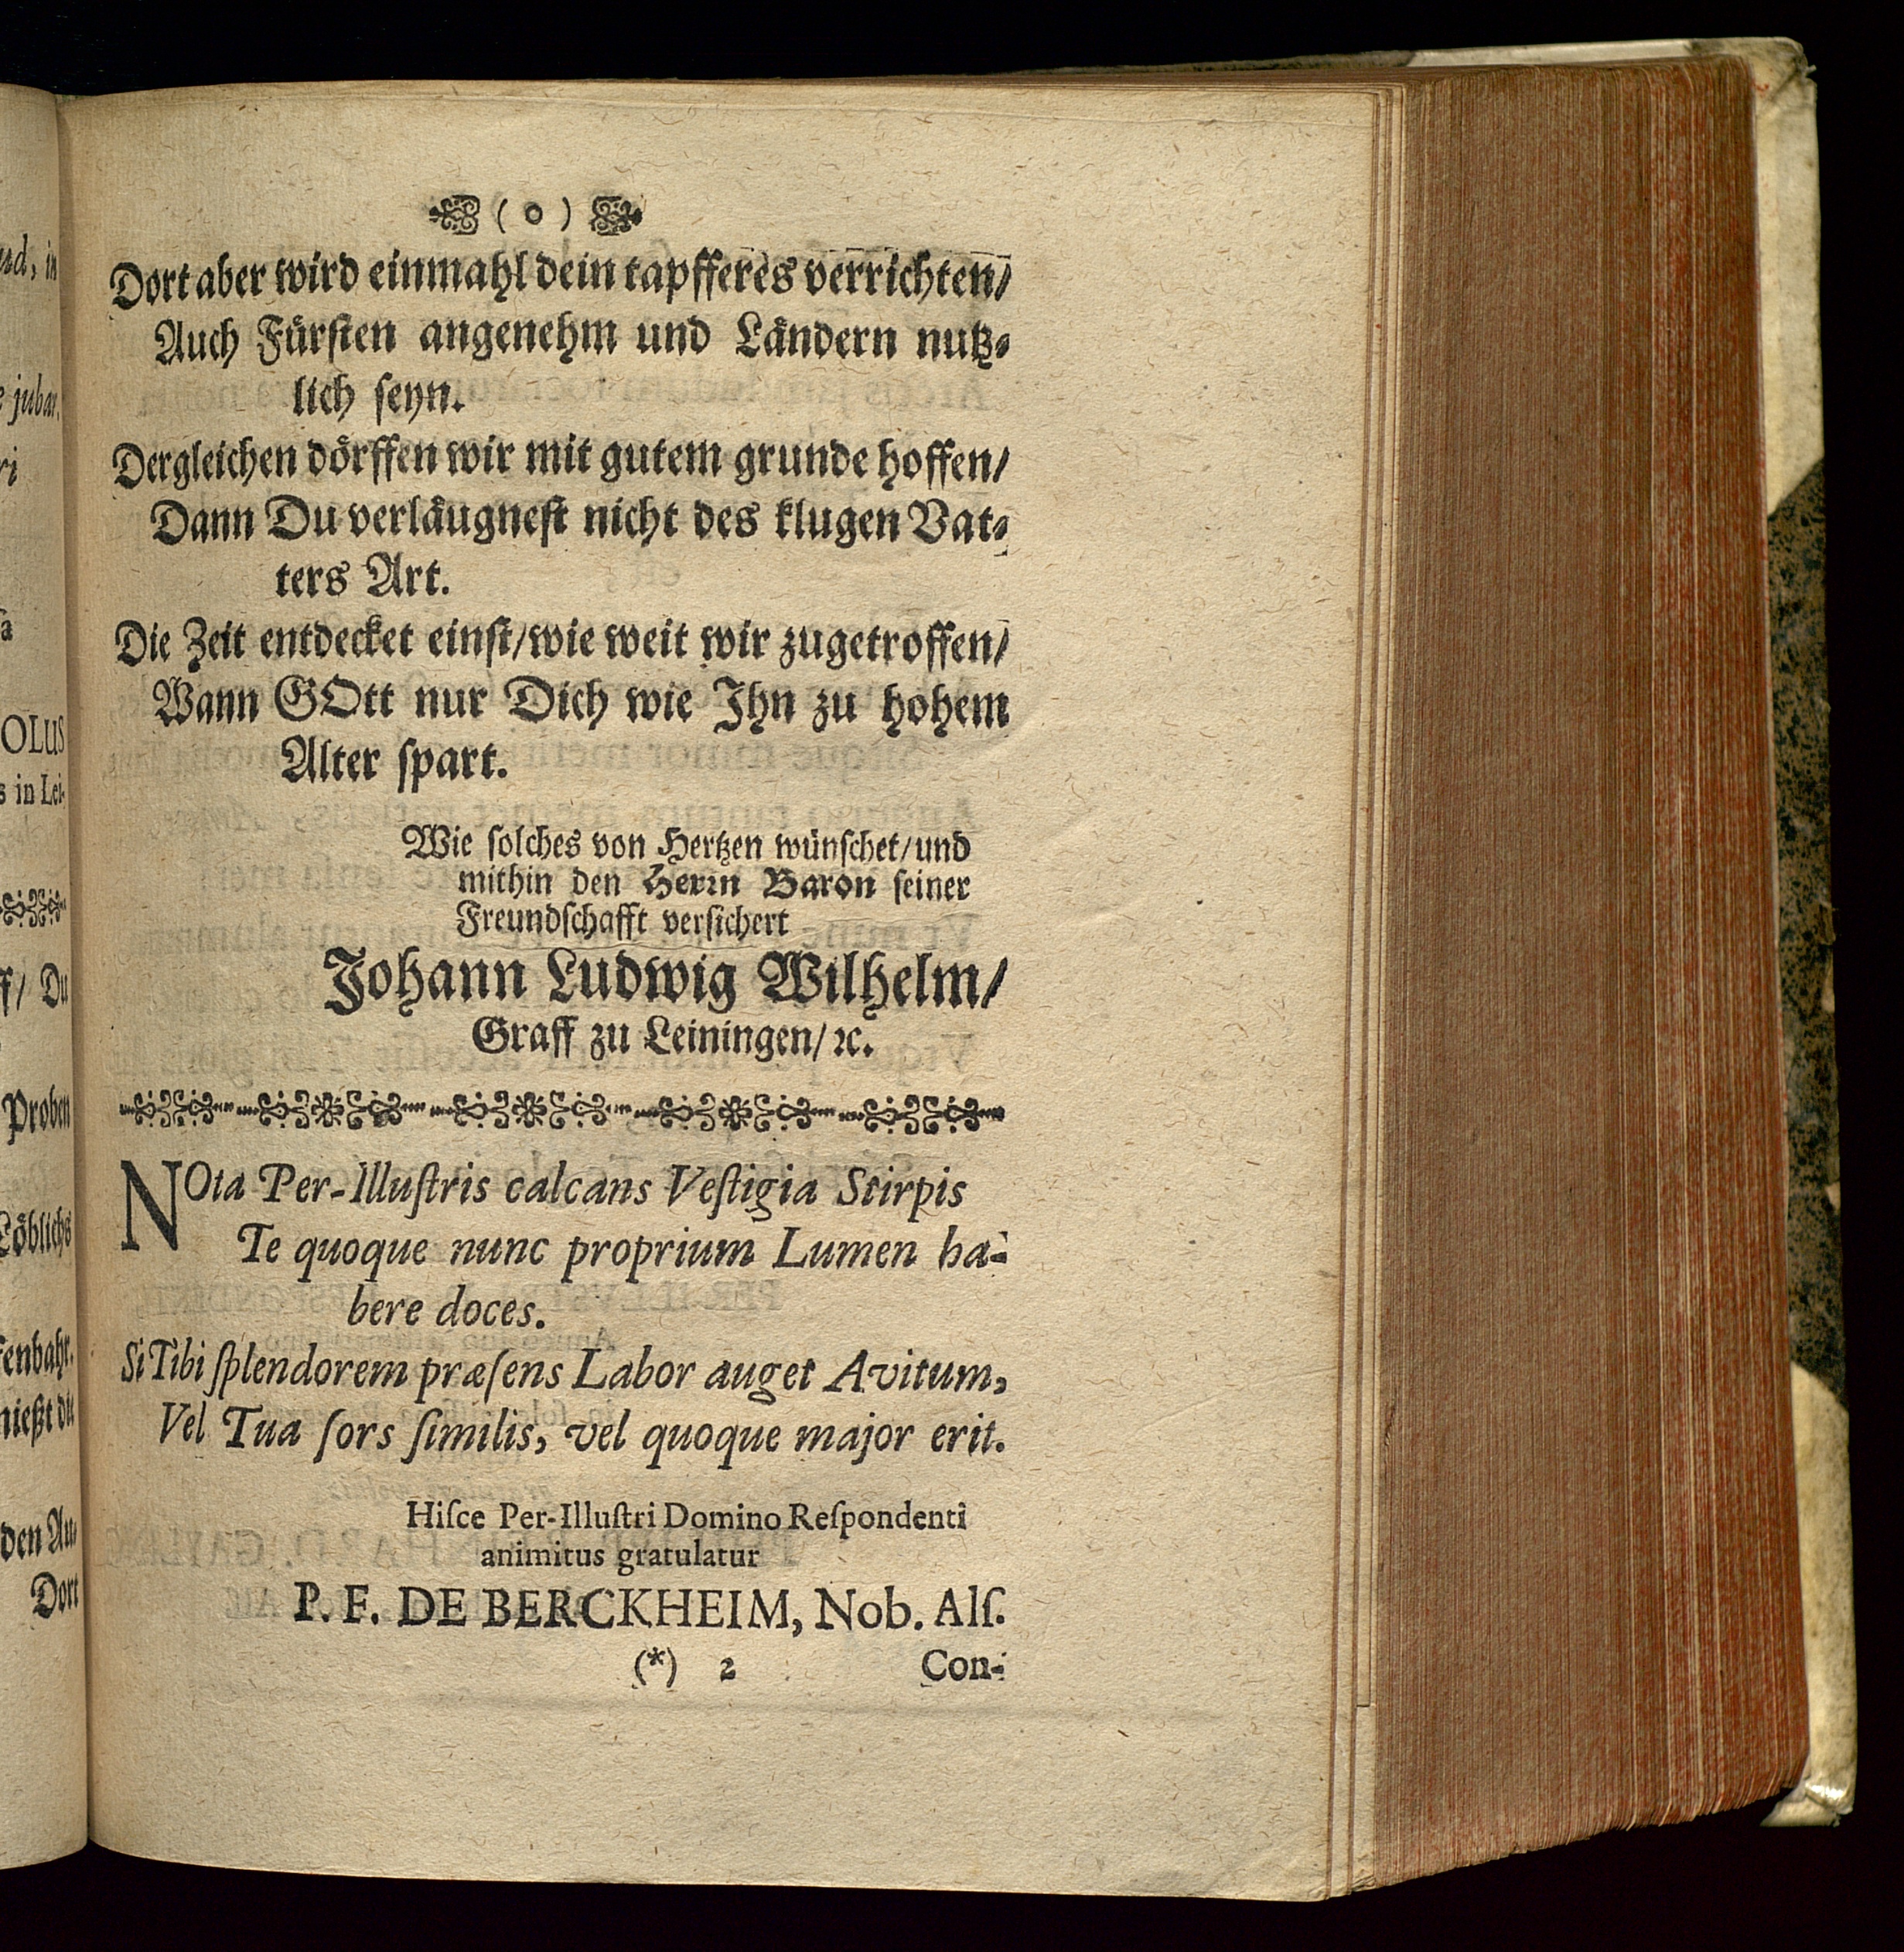 ( o )
Dort aber wird einmahl dein tapfferes verrichten/
Auch Fürsten angenehm und Ländern nutz-
lich seyn.
Dergleichen dörffen wir mit gutem grunde hoffen/
Dann Du verläugnest nicht des klugen Vat-
ters Art.
Die Zeit entdecket einst/wie weit wir zugetroffen/
Wann GOtt nur Dich wie Ihn zu hohem
Alter spart.
Wie solches von Hertzen wünschet/und
mithin den Herrn Baron seiner
Freundschafft versichert
Johann Ludwig Wilhelm/
Graff zu Leiningen/ ꝛc.
NOta Per-Illuſtris calcans Veſtigia Stirpis
Te quoque nunc proprium Lumen ha-
bere doces.
Si Tibi ſplendorem præſens Labor auget Avitum,
Vel Tua ſors ſimilis, vel quoque major erit.
Hiſce Per-Illuſtri Domino Reſpondenti
animitus gratulatur
P. F. DE BERCKHEIM, Nob. Alſ.
(*) 2 Con-
jubar.
OLUS
s in Lei-
Du
Proben
Löblichs
den Au-
Dort